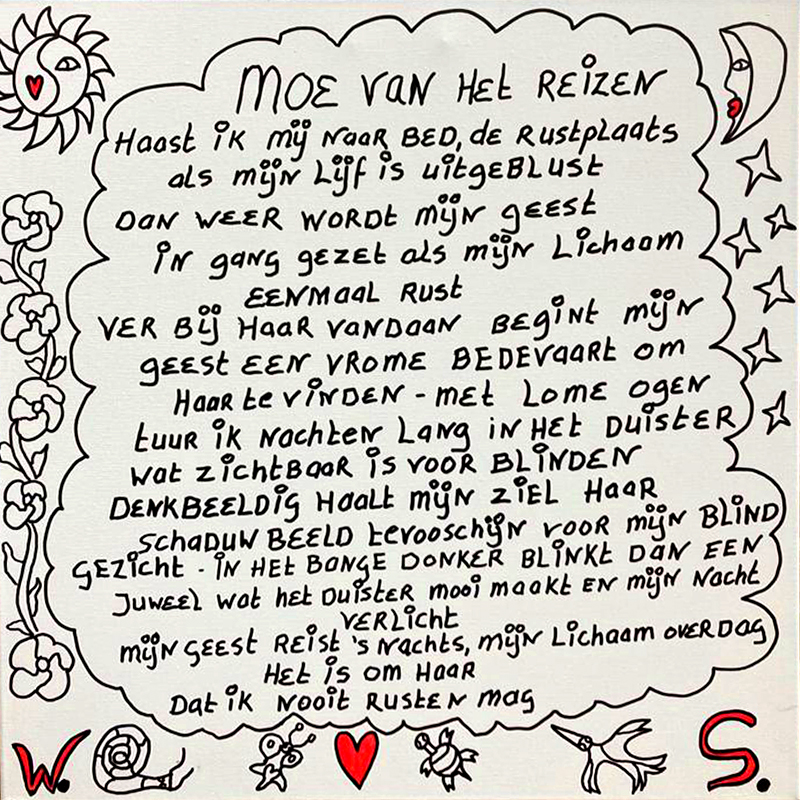 MOE VAN HET REIZEN
Haast ik mij NaaR BED, de RUStplaats
als mijn Lijf is uitgeBLUSt
DaN WEER WORDt mijn geest
in gang gezet als mijn Lichaam
EENmaal RUSt
VER Bij Haar vandaan BEgint mijn
geest EEN VROME BEDEVaaRt om
HaaR te vinden - met LOME OGEN
tuur ik NachteN Lang in HEt DuistER
wat zichtBaaR is vooR BLINDEN
DENKBEELDig Haalt mijn ziEL HaaR
schaDUW BEELD tevooschijn vooR mijn BLIND
GEZicht - iN HEt BaNgE DONKER BLINKt DAN EEN
JuweeL wat het Duister mooi maakt EN mijN Nacht
VERLicht
mijn GEESt REiSt 's Nachts, mijn Lichaam overDag
HEt is om HaaR
Dat ik Nooit RUStEN mag
W. S.